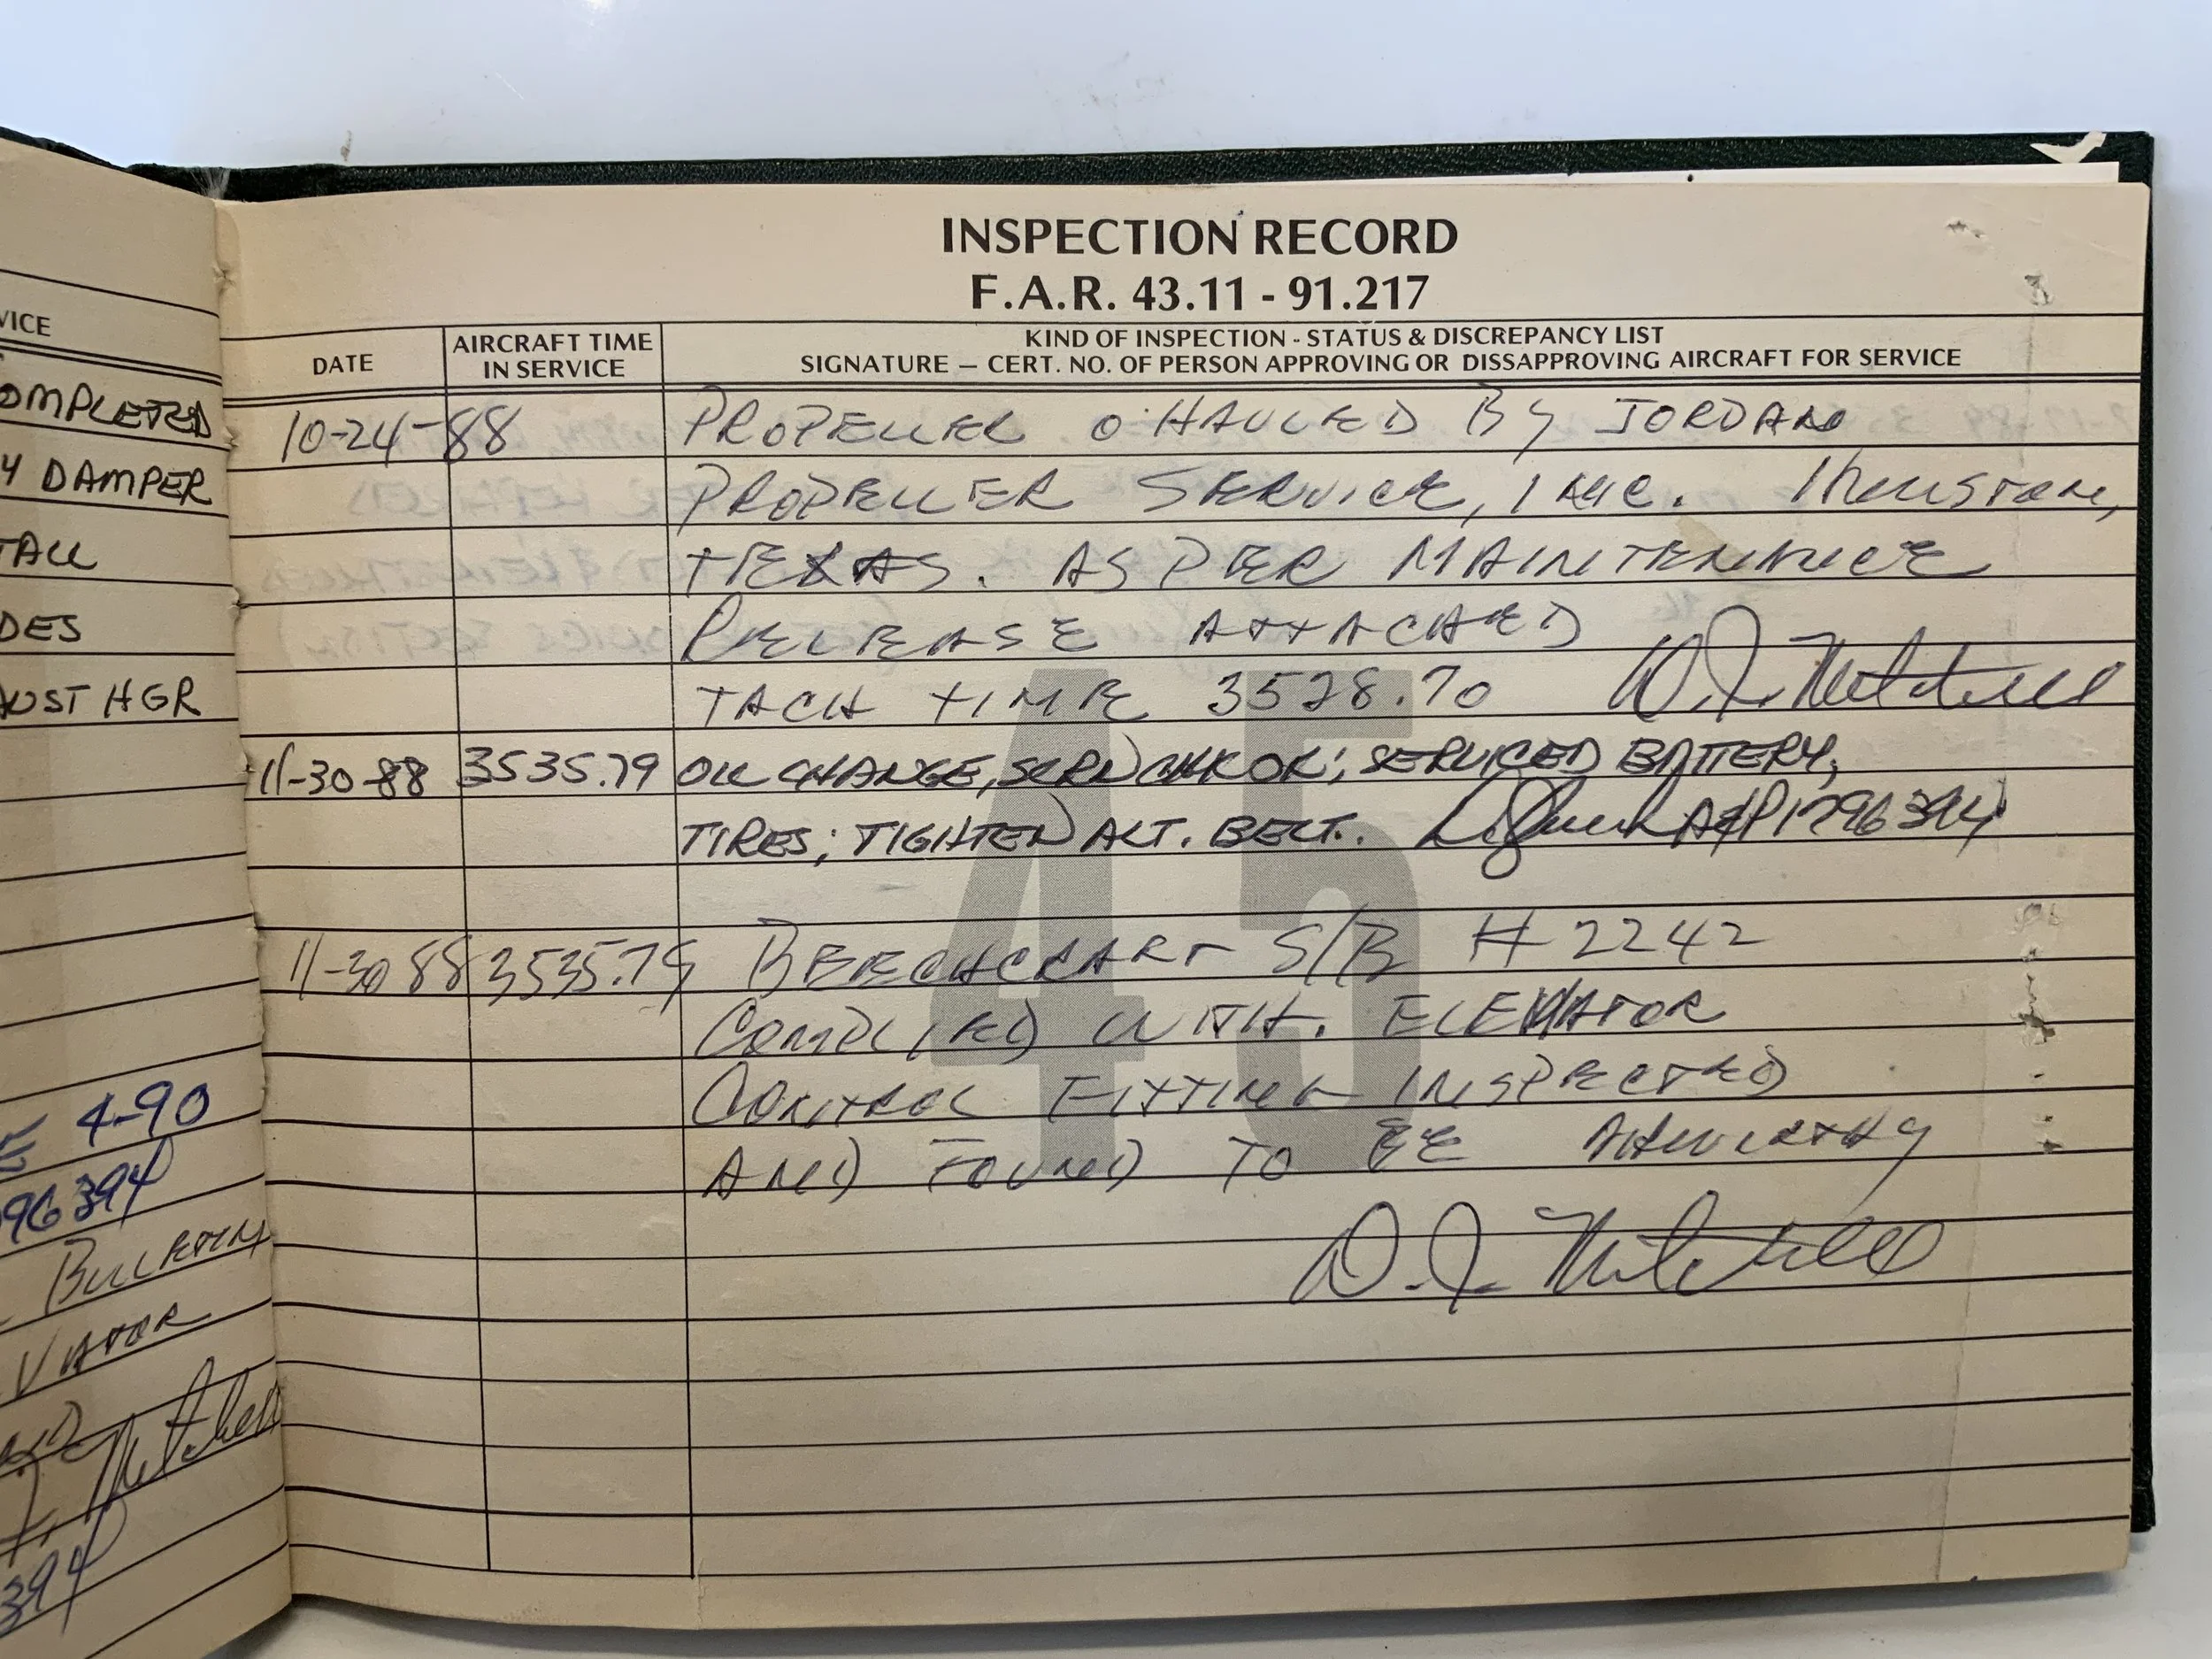 VICE
OMPLETED
Y DAMPER
TALL
DES
UST HGR
4-90
96394
BULLETIN
VATOR
394
INSPECTION RECORD
F.A.R. 43.11 - 91.217
DATE
AIRCRAFT TIME
IN SERVICE
KIND OF INSPECTION - STATUS & DISCREPANCY LIST
SIGNATURE — CERT. NO. OF PERSON APPROVING OR DISSAPPROVING AIRCRAFT FOR SERVICE
10-24-88 PROPELLER O'HAULED BY JORDAN
PROPELLER SERVICE, INC. HOUSTON,
TEXAS. AS PER MAINTENENCE
RELEASE ATTACHED
TACH TIME 3528.70 D. J. Mitchell
11-30-88 3535.79 OIL CHANGE, SCRN CHK OK; SERVICED BATTERY,
TIRES; TIGHTEN ALT. BELT. A&P 1796394
11-30 88 3535.79 BEECHCRART S/B # 2242
COMPLIED WITH. ELEVATOR
CONTROL FITTING INSPECTED
AND FOUND TO BE AIRWORTHY
D. J. Mitchell
45